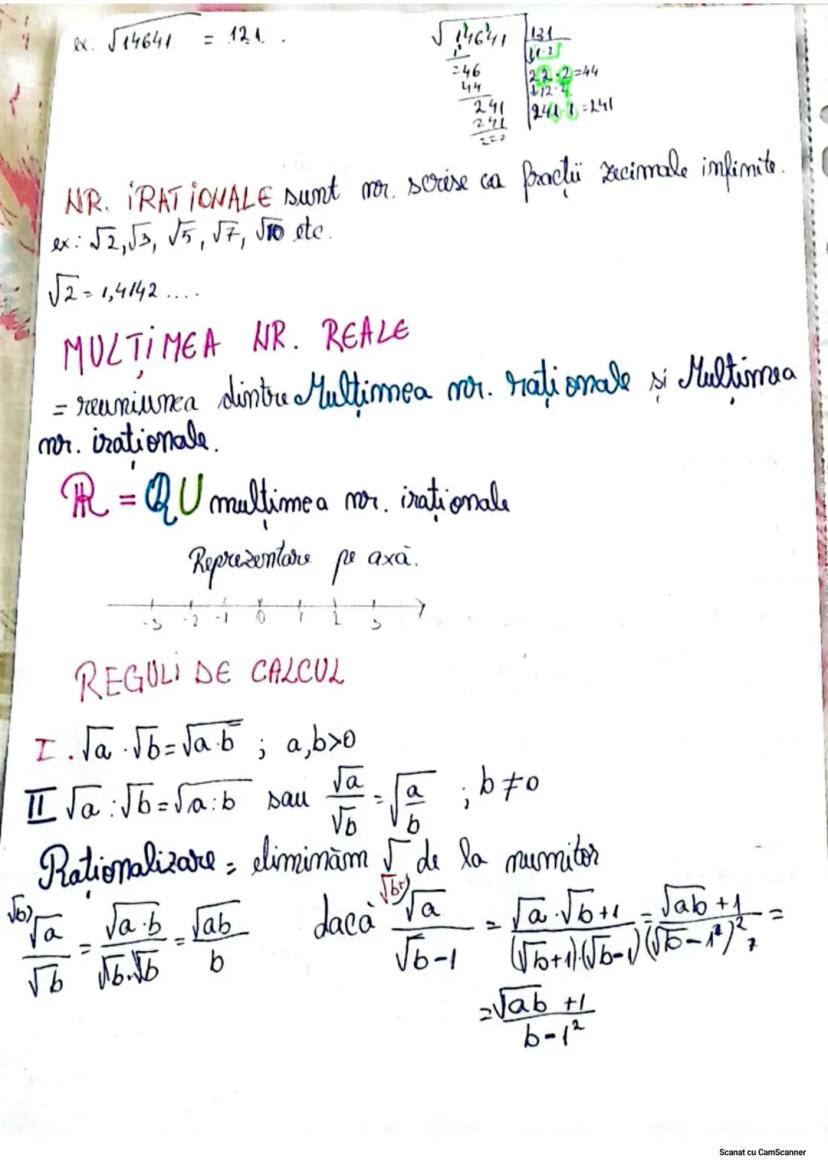 ex. √14641 = 121.
√14641 | 121
1
=46
44
241
241
===
1·1
22·2=44
241·1=241
NR. IRAȚIONALE sunt nr. scrise ca fracții zecimale infinite.
ex: √2, √3, √5, √7, √10 etc.
√2 = 1,4142 ....
MULȚIMEA NR. REALE
= reuniunea dintre Mulțimea nr. raționale și Mulțimea
nr. iraționale.
ℝ = ℚ U mulțimea nr. iraționale
Reprezentare pe axă.
-3 -2 -1 0 1 2 3
REGULI DE CALCUL
I. √a · √b = √a·b ; a,b>0
II √a : √b = √a:b sau √a/√b = √a/b ; b ≠ 0
Raționalizare = eliminăm √ de la numitor
√b) √a/√b = √a·b/√b·√b = √ab/b dacă √a/√b-1 = √a·√b+1/(√b+1)·(√b-1) = √ab+1/(√b-1²)² =
= √ab +1/b-1²
Scanat cu CamScanner